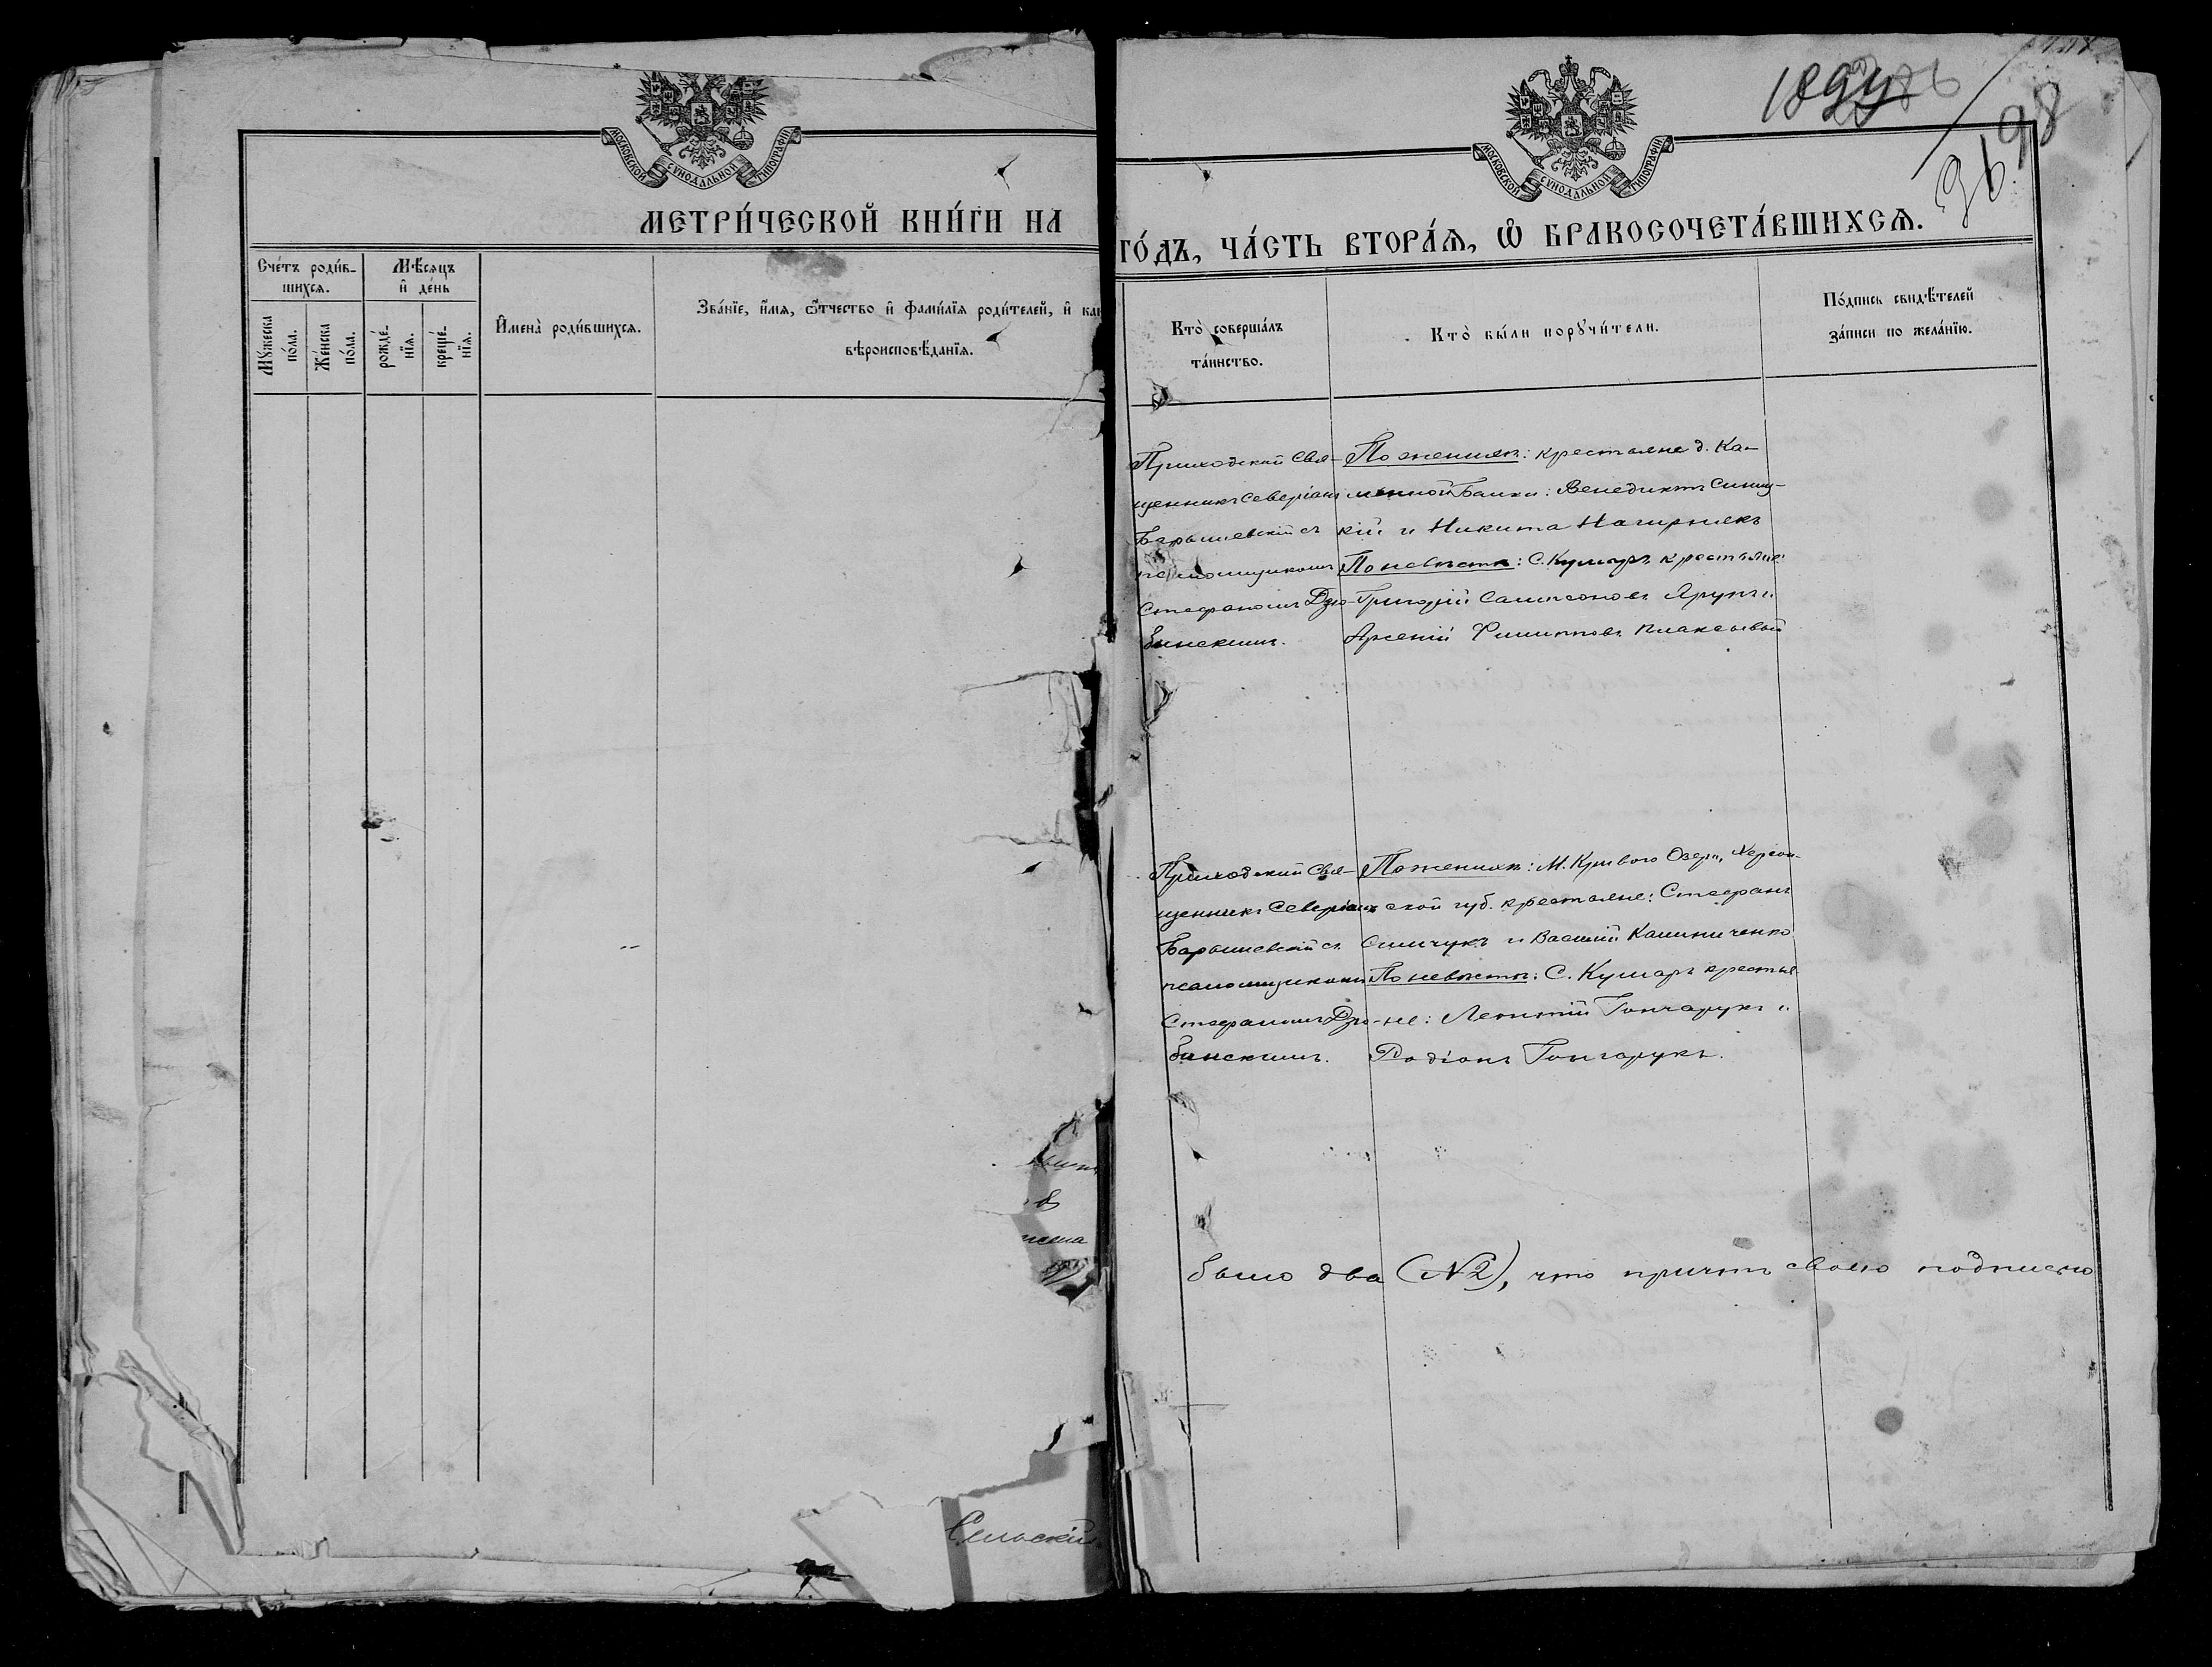 МОСКОВСКОЙ СѴНОДАЛЬНОЙ ТИПОГРАФІИ
МЕТРИ́ЧЕСКОЙ КНИ́ГИ НА
Сче́тъ роди́в-
шихсѧ.
Мꙋ́жеска
по́ла.
Же́нска
по́ла.
Мѣ́сѧцъ
и҆ де́нь
рожде́-
нїѧ.
креще́-
нїѧ.
И҆мена̀ роди́вшихсѧ.
Зва́нїе, и҆́мѧ, ѻ҆́тчество и҆ фами́лїѧ роди́телей, и҆
вѣроисповѣ́данїѧ.
Сельскій
МОСКОВСКОЙ СѴНОДАЛЬНОЙ ТИПОГРАФІИ
98
ГО́ДЪ, ЧА́СТЬ ВТОРА́Ѧ, Ѽ БРАКОСОЧЕТА́ВШИХСѦ.
Кто̀ соверша́лъ
та́инство.
Кто̀ бы́ли порꙋчи́тели.
По́дпись свидѣ́телей
за́писи по жела́нїю.
Приходскій Свя-
щенникъ Северіанъ
Барышевскій съ
псаломщикомъ
Стефаномъ Дзю-
бинскимъ.
По женихѣ: крестьяне д. Ка-
менной Балки: Венедиктъ Синиц-
кій и Никита Нагирнякъ
По невѣстѣ: С. Кумаръ крестьяне:
Григорій Сампсоновъ Ярукъ и
Арсеній Филипповъ Плаксывый
Приходскій Свя-
щенникъ Северіанъ
Барышевскій съ
псаломщикомъ
Стефаномъ Дзю-
бинскимъ.
По женихѣ: М. Криваго Озера, Херсон-
ской губ. крестьяне: Стефанъ
Симчукъ и Василій Калиниченко
По невѣстѣ: С. Кумаръ крестья-
не: Леонтій Гончарукъ и
Родіонъ Гончарукъ.
было два (№2), что причтъ своею подписью